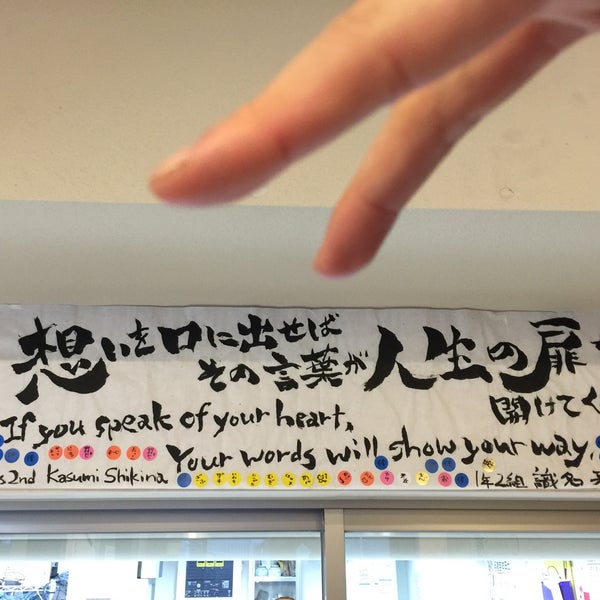 想いを口に出せば
その言葉が人生の扉
開けてく
If you speak of your heart,
Your words will show your way.
2nd Kasumi Shikina
1年2組 識名